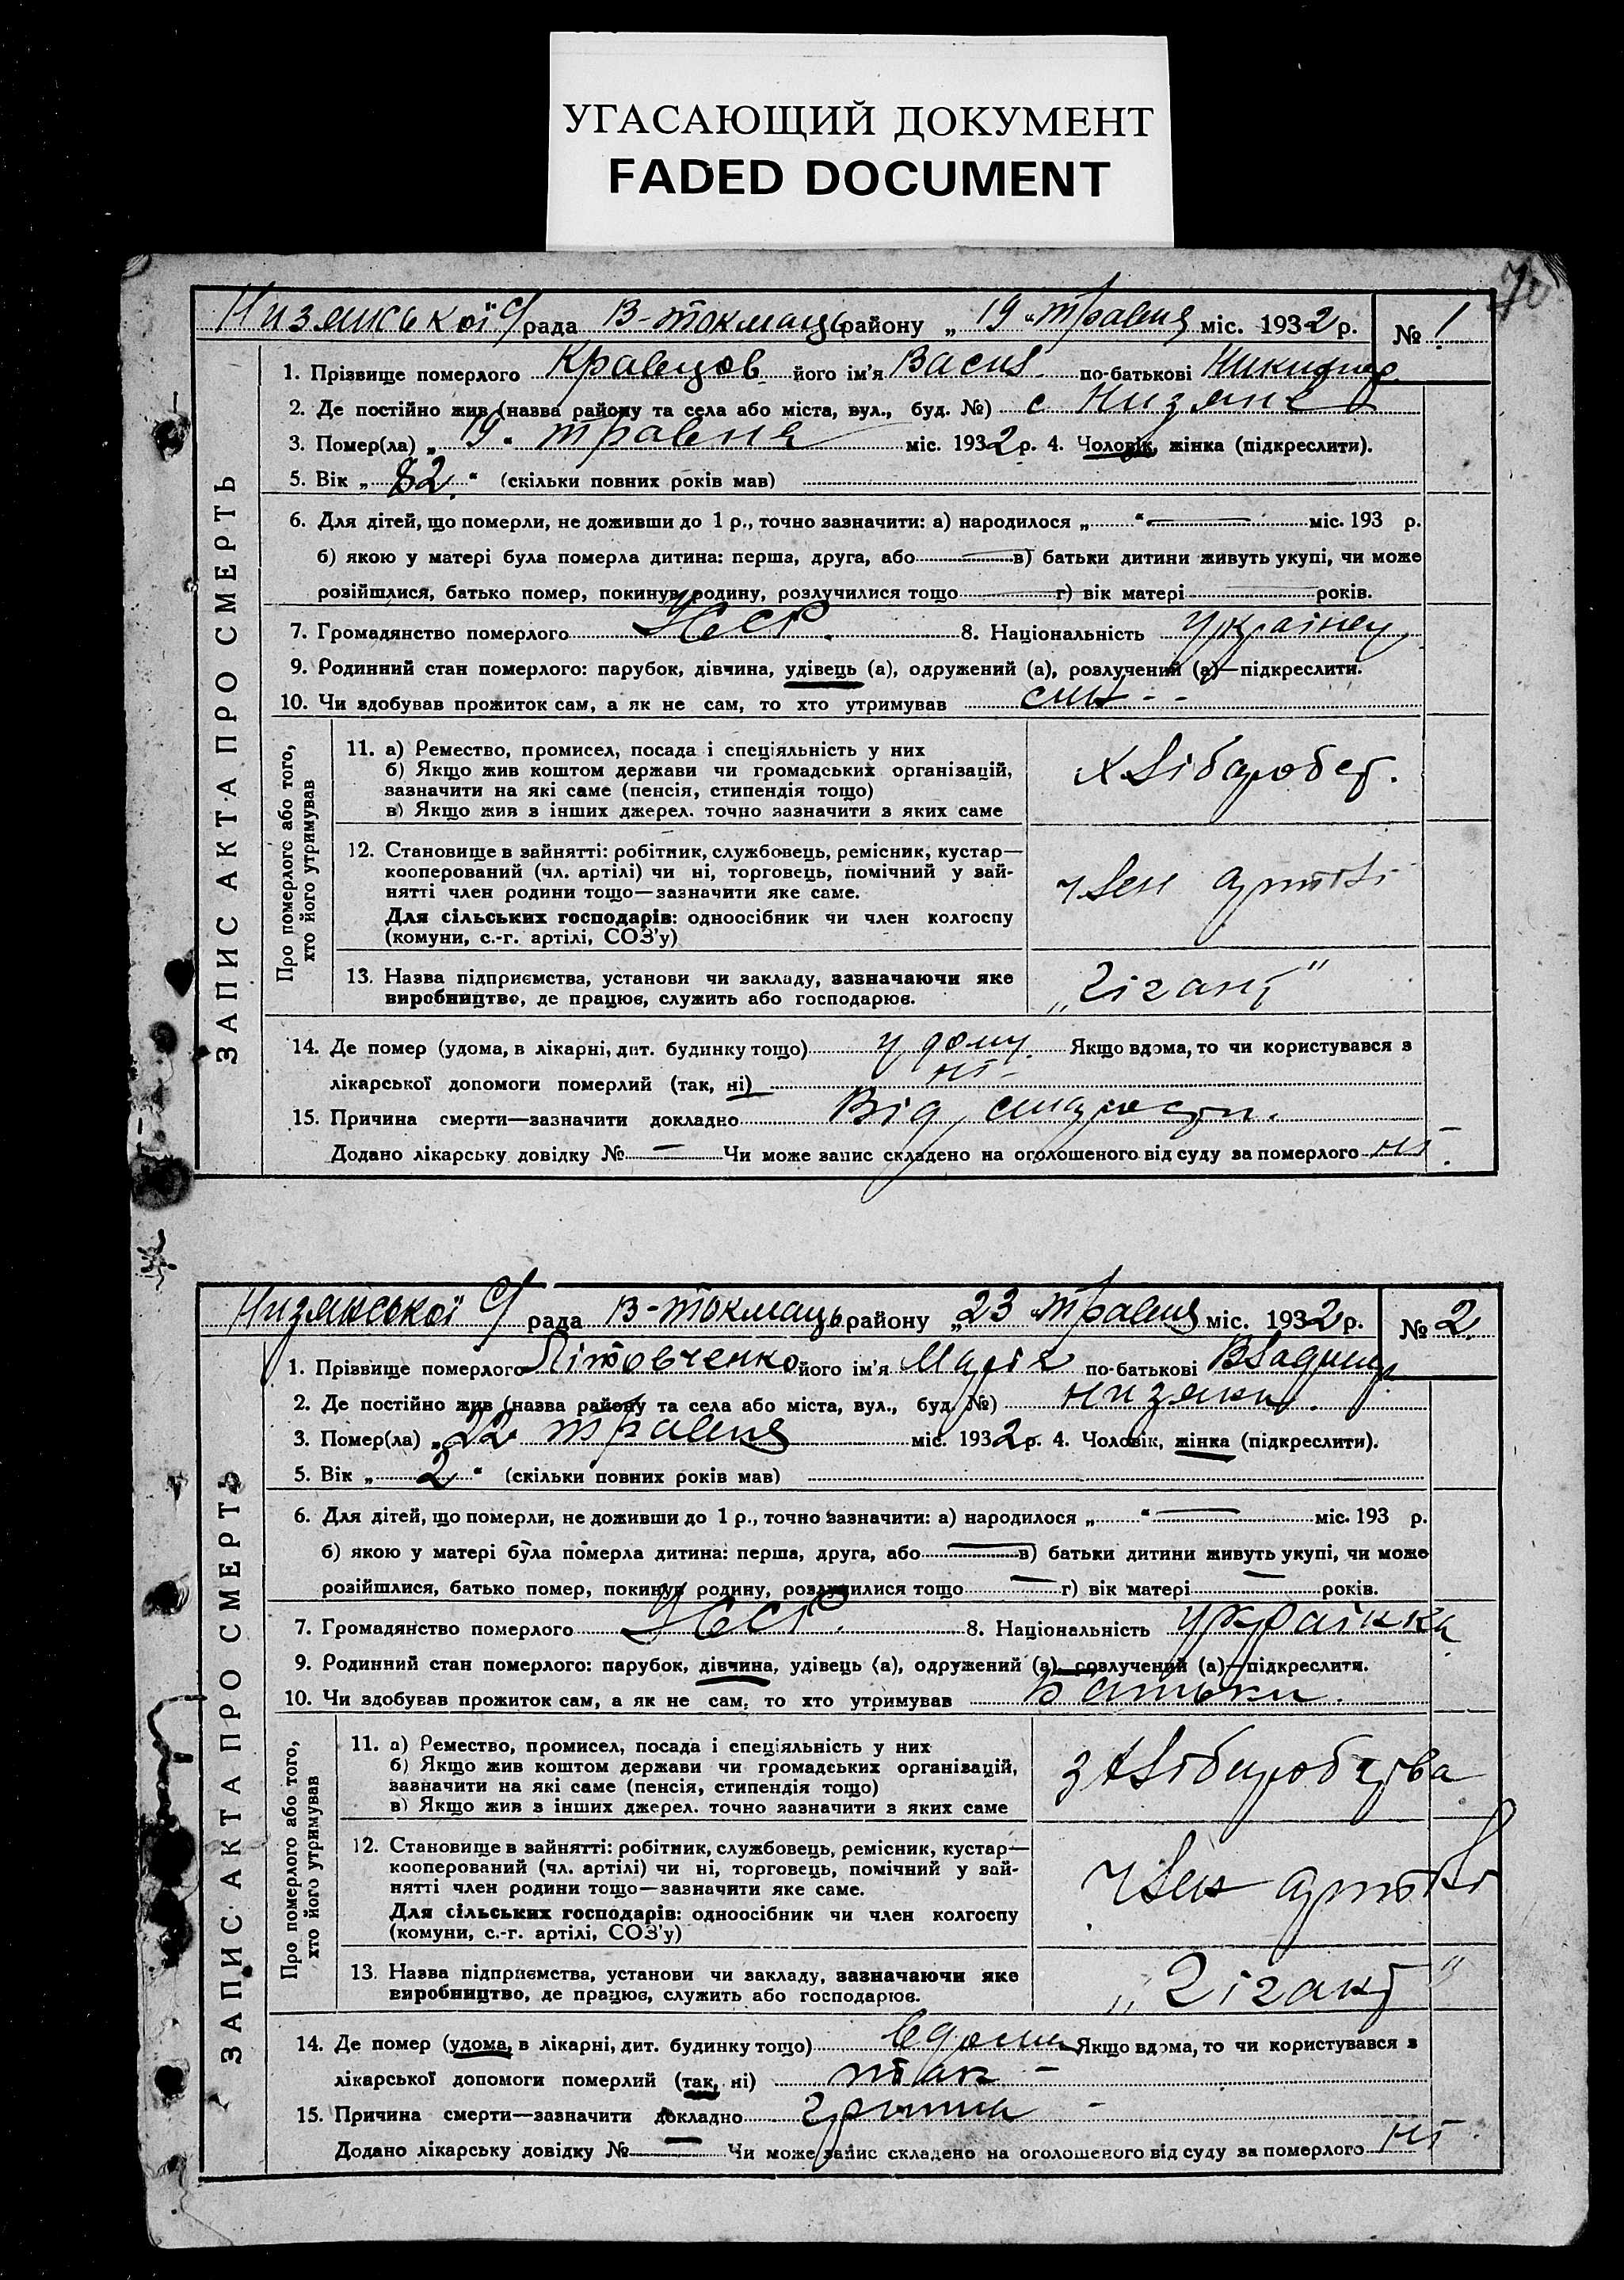 УГАСАЮЩИЙ ДОКУМЕНТ
FADED DOCUMENT
70
Низянської с/рада В-токмаць району „19" травня міс. 1932 р. № 1
ЗАПИС АКТА ПРО СМЕРТЬ
1. Прізвище померлого Кравцов його ім'я Васил по-батькові
2. Де постійно жив (назва району та села або міста, вул., буд. №) с Низяне
3. Помер(ла) „19" травня міс. 1932 р. 4. Чоловік, жінка (підкреслити).
5. Вік „82" (скільки повних років мав)
6. Для дітей, що померли, не доживши до 1 р., точно зазначити: а) народилося „ " міс. 193 р.
б) якою у матері була померла дитина: перша, друга, або в) батьки дитини живуть укупі, чи може
розійшлися, батько помер, покинув родину, розлучилися тощо г) вік матері років.
7. Громадянство померлого УССР. 8. Національність Українец
9. Родинний стан померлого: парубок, дівчина, удівець (а), одружений (а), розлучений (а)—підкреслити.
10. Чи здобував прожиток сам, а як не сам, то хто утримував син - -
Про померлого або того,
хто його утримував
11. а) Ремество, промисел, посада і спеціяльність у них
б) Якщо жив коштом держави чи громадських організацій,
зазначити на які саме (пенсія, стипендія тощо)
в) Якщо жив з інших джерел. точно зазначити з яких саме
хлібороб.
12. Становище в зайнятті: робітник, службовець, ремісник, кустар—
кооперований (чл. артілі) чи ні, торговець, помічний у зай-
нятті член родини тощо—зазначити яке саме.
Для сільських господарів: одноосібник чи член колгоспу
(комуни, с.-г. артілі, СОЗ'у)
член артілі
13. Назва підприємства, установи чи закладу, зазначаючи яке
виробництво, де працює, служить або господарює.
„Гігант"
14. Де помер (удома, в лікарні, дит. будинку тощо) у дому. Якщо вдома, то чи користувався з
лікарської допомоги померлий (так, ні) ні -
15. Причина смерти—зазначити докладно Від старости.
Додано лікарську довідку № — Чи може запис складено на оголошеного від суду за померлого ні
Низянської с/рада В-токмаць району „23" травня міс. 1932 р. № 2.
ЗАПИС АКТА ПРО СМЕРТЬ
1. Прізвище померлого Літовченко його ім'я Марія по-батькові
2. Де постійно жив (назва району та села або міста, вул., буд. №) низяни.
3. Помер(ла) „22" травня міс. 1932 р. 4. Чоловік, жінка (підкреслити).
5. Вік „2" (скільки повних років мав)
6. Для дітей, що померли, не доживши до 1 р., точно зазначити: а) народилося „ " міс. 193 р.
б) якою у матері була померла дитина: перша, друга, або в) батьки дитини живуть укупі, чи може
розійшлися, батько помер, покинув родину, розлучилися тощо г) вік матері років.
7. Громадянство померлого УССР. 8. Національність українка
9. Родинний стан померлого: парубок, дівчина, удівець (а), одружений (а), розлучений (а)—підкреслити.
10. Чи здобував прожиток сам, а як не сам, то хто утримував батьки.
Про померлого або того,
хто його утримував
11. а) Ремество, промисел, посада і спеціяльність у них
б) Якщо жив коштом держави чи громадських організацій,
зазначити на які саме (пенсія, стипендія тощо)
в) Якщо жив з інших джерел. точно зазначити з яких саме
з хліборобства
12. Становище в зайнятті: робітник, службовець, ремісник, кустар—
кооперований (чл. артілі) чи ні, торговець, помічний у зай-
нятті член родини тощо—зазначити яке саме.
Для сільських господарів: одноосібник чи член колгоспу
(комуни, с.-г. артілі, СОЗ'у)
член артілі
13. Назва підприємства, установи чи закладу, зазначаючи яке
виробництво, де працює, служить або господарює.
„Гігант"
14. Де помер (удома, в лікарні, дит. будинку тощо) вдома Якщо вдома, то чи користувався з
лікарської допомоги померлий (так, ні) так -
15. Причина смерти—зазначити докладно грипп -
Додано лікарську довідку № — Чи може запис складено на оголошеного від суду за померлого ні